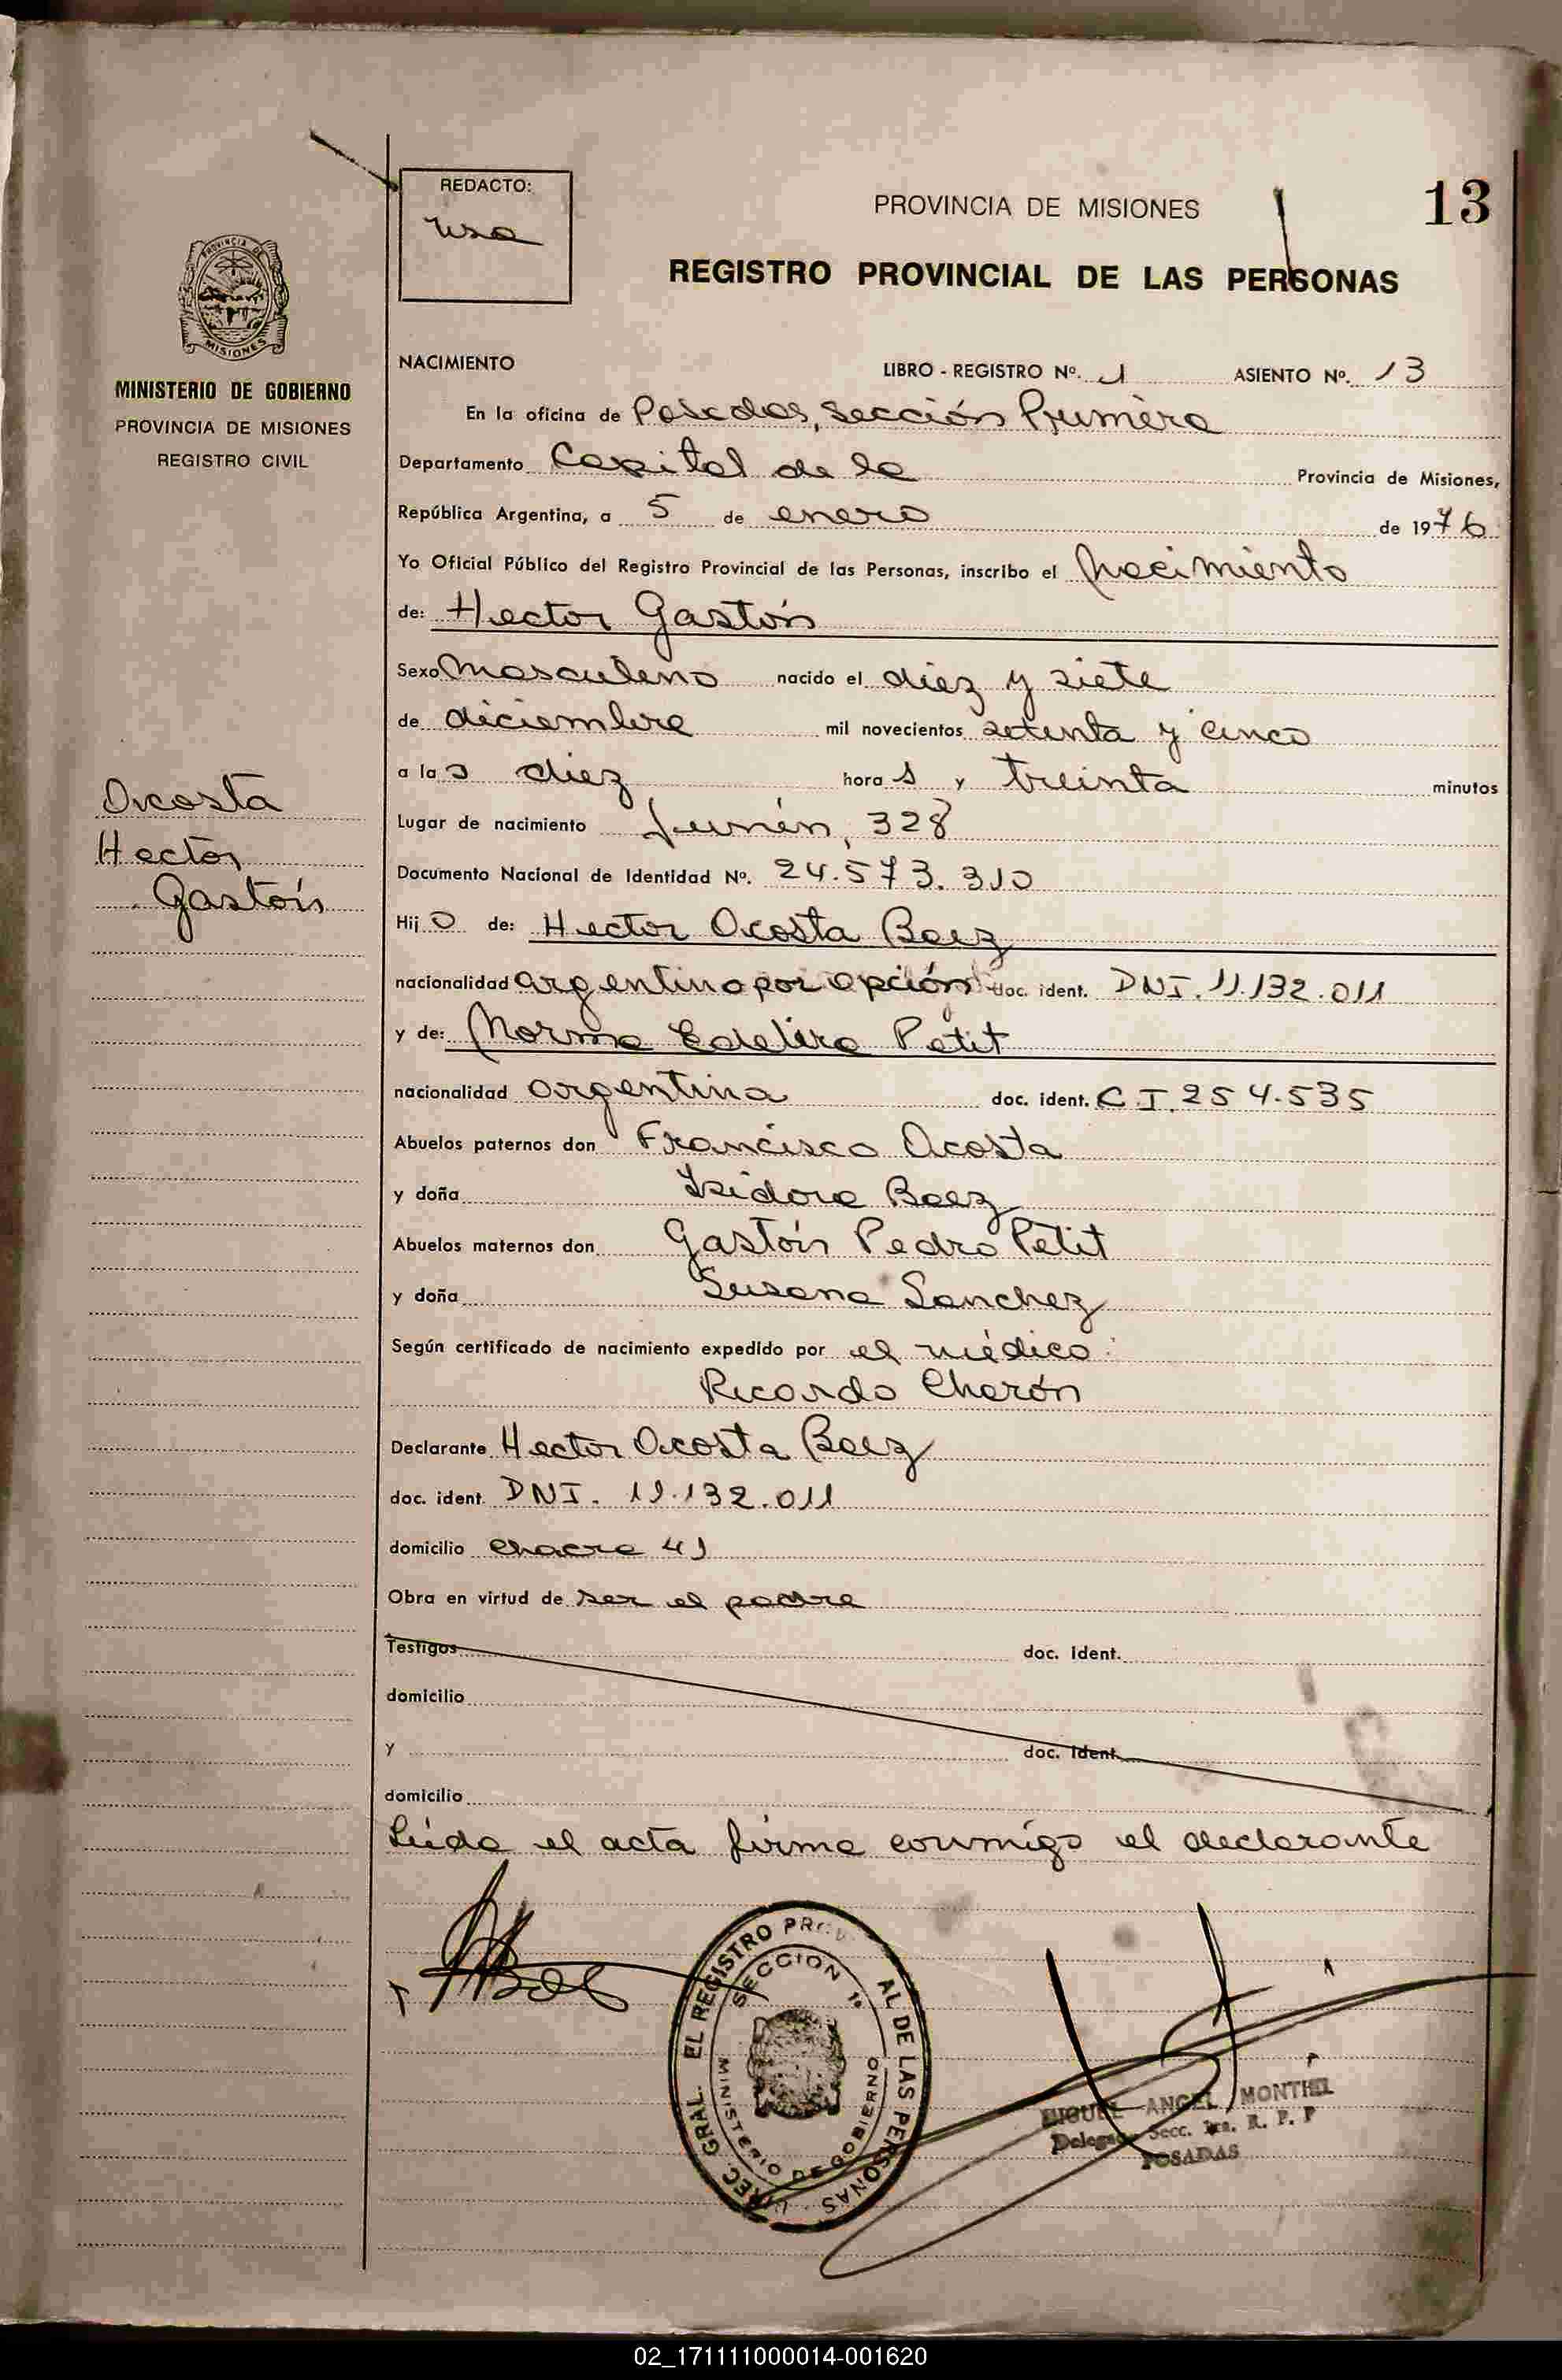 REDACTO:
PROVINCIA DE MISIONES
13
REGISTRO PROVINCIAL DE LAS PERSONAS
PROVINCIA DE MISIONES
MINISTERIO DE GOBIERNO
PROVINCIA DE MISIONES
REGISTRO CIVIL
NACIMIENTO LIBRO - REGISTRO Nº. 1 ASIENTO Nº. 13
En la oficina de Posadas, Sección Primera
Departamento Capital de la Provincia de Misiones,
República Argentina, a 5 de enero de 1976
Yo Oficial Público del Registro Provincial de las Personas, inscribo el Nacimiento
de: Hector Gastón
Sexo Masculino nacido el diez y siete
de diciembre mil novecientos setenta y cinco
a las diez horas y treinta minutos
Acosta
Hector
Gastón
Lugar de nacimiento Junín, 328
Documento Nacional de Identidad Nº. 24.573.310
Hijo de: Hector Acosta Baez
nacionalidad argentino por opción doc. ident. DNI. 11.132.011
y de: Norma Edelira Petit
nacionalidad argentina doc. ident. C.I. 254.535
Abuelos paternos don Francisco Acosta
y doña Isidora Baez
Abuelos maternos don Gastón Pedro Petit
y doña Susana Sanchez
Según certificado de nacimiento expedido por el médico:
Ricardo Cherón
Declarante Hector Acosta Baez
doc. ident. DNI. 11.132.011
domicilio chacra 41
Obra en virtud de ser el padre
Testigos doc. ident.
domicilio
y doc. ident.
domicilio
Leída el acta firma conmigo el declarante
EL REGISTRO PROV AL DE LAS PERSONAS
REC. GRAL.
SECCION 1ª
MINISTERIO DE GOBIERNO
MIGUEL ANGEL MONTIEL
Delegado Secc. 1ra. R. P. P
POSADAS
02_171111000014-001620